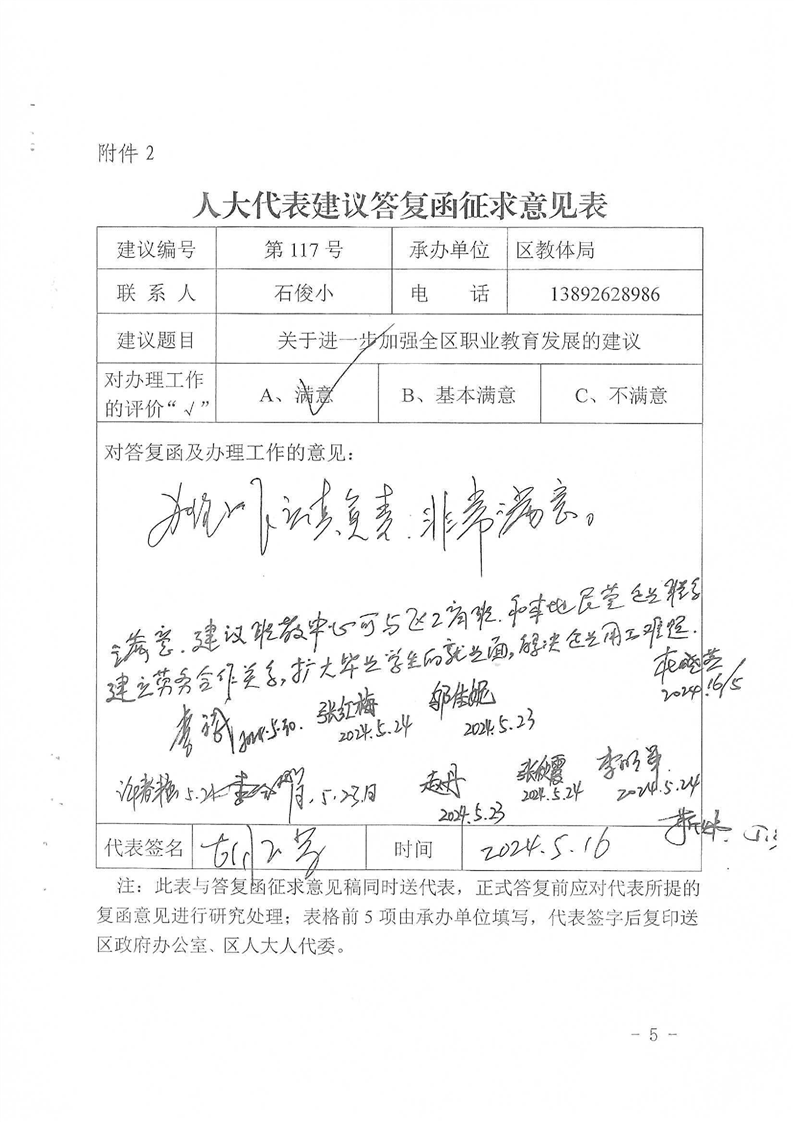 附件 2
人大代表建议答复函征求意见表
建议编号 第 117 号 承办单位 区教体局
联 系 人 石俊小 电 话 13892628986
建议题目 关于进一步加强全区职业教育发展的建议
对办理工作的评价“√” A、满意 √ B、基本满意 C、不满意
对答复函及办理工作的意见：
认真负责，非常满意。
满意，建议职教中心可与区工商联，和本地民营企业联系
建立劳务合作关系，扩大毕业学生的就业面，解决企业用工难题。
2024.6/5
2024.5.30. 张红梅 2024.5.24 邹佳妮 2024.5.23
5.23日 赵丹 2024.5.23 张欣霞 2024.5.24 李明军 2024.5.24
代表签名 时间 2024.5.16
注：此表与答复函征求意见稿同时送代表，正式答复前应对代表所提的
复函意见进行研究处理；表格前 5 项由承办单位填写，代表签字后复印送
区政府办公室、区人大人代委。
- 5 -